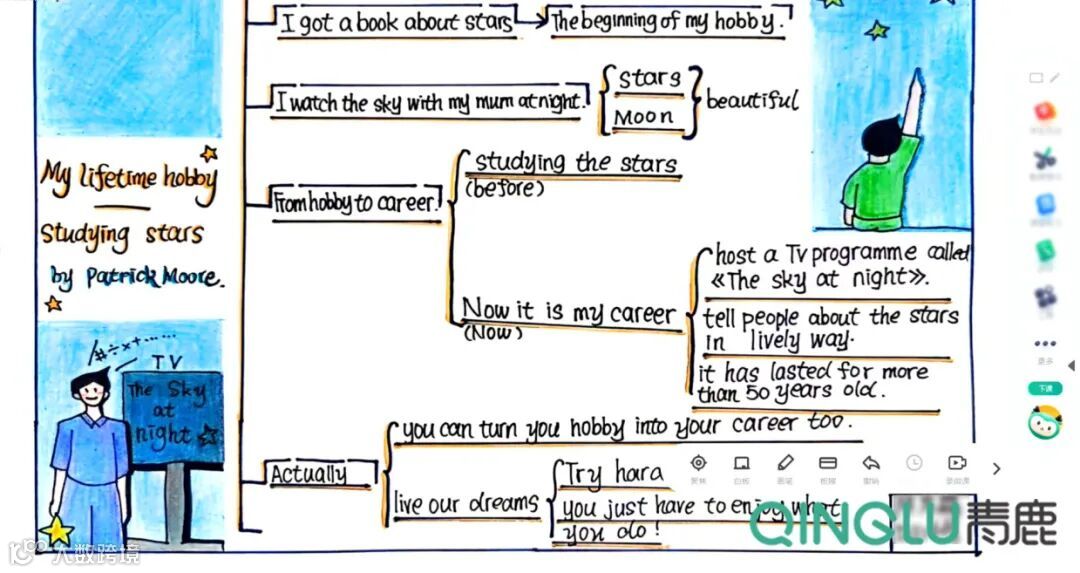 I got a book about stars
The beginning of my hobby.
I watch the sky with my mum at night.
stars
Moon
beautiful
My lifetime hobby
—
studying stars
by Patrick Moore.
From hobby to career.
studying the stars
(before)
Now it is my career
(Now)
host a TV programme called
《The sky at night》.
tell people about the stars
in lively way.
it has lasted for more
than 50 years old.
#÷×+-....
TV
The Sky
at
night
Actually
you can turn you hobby into your career too.
live our dreams
Try hard
you just have to enjoy what
you do!
更多
下课
QINGLU青鹿
大数跨境